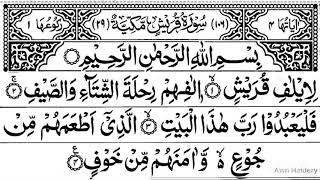 اٰيَاتُهَا ٤ (١٠٦) سُوْرَةُ قُرَيْشٍ مَكِّيَّةٌ (٢٩) رُكُوْعُهَا ١
بِسْمِ اللّٰهِ الرَّحْمٰنِ الرَّحِيْمِ
لِاِيْلٰفِ قُرَيْشٍ ۙ ١ اٖلٰفِهِمْ رِحْلَةَ الشِّتَآءِ وَالصَّيْفِ ۚ ٢
فَلْيَعْبُدُوْا رَبَّ هٰذَا الْبَيْتِ ۙ ٣ الَّذِيْٓ اَطْعَمَهُمْ مِّنْ
جُوْعٍ ۙ۬ وَّاٰمَنَهُمْ مِّنْ خَوْفٍ ٤
Awn Haidery